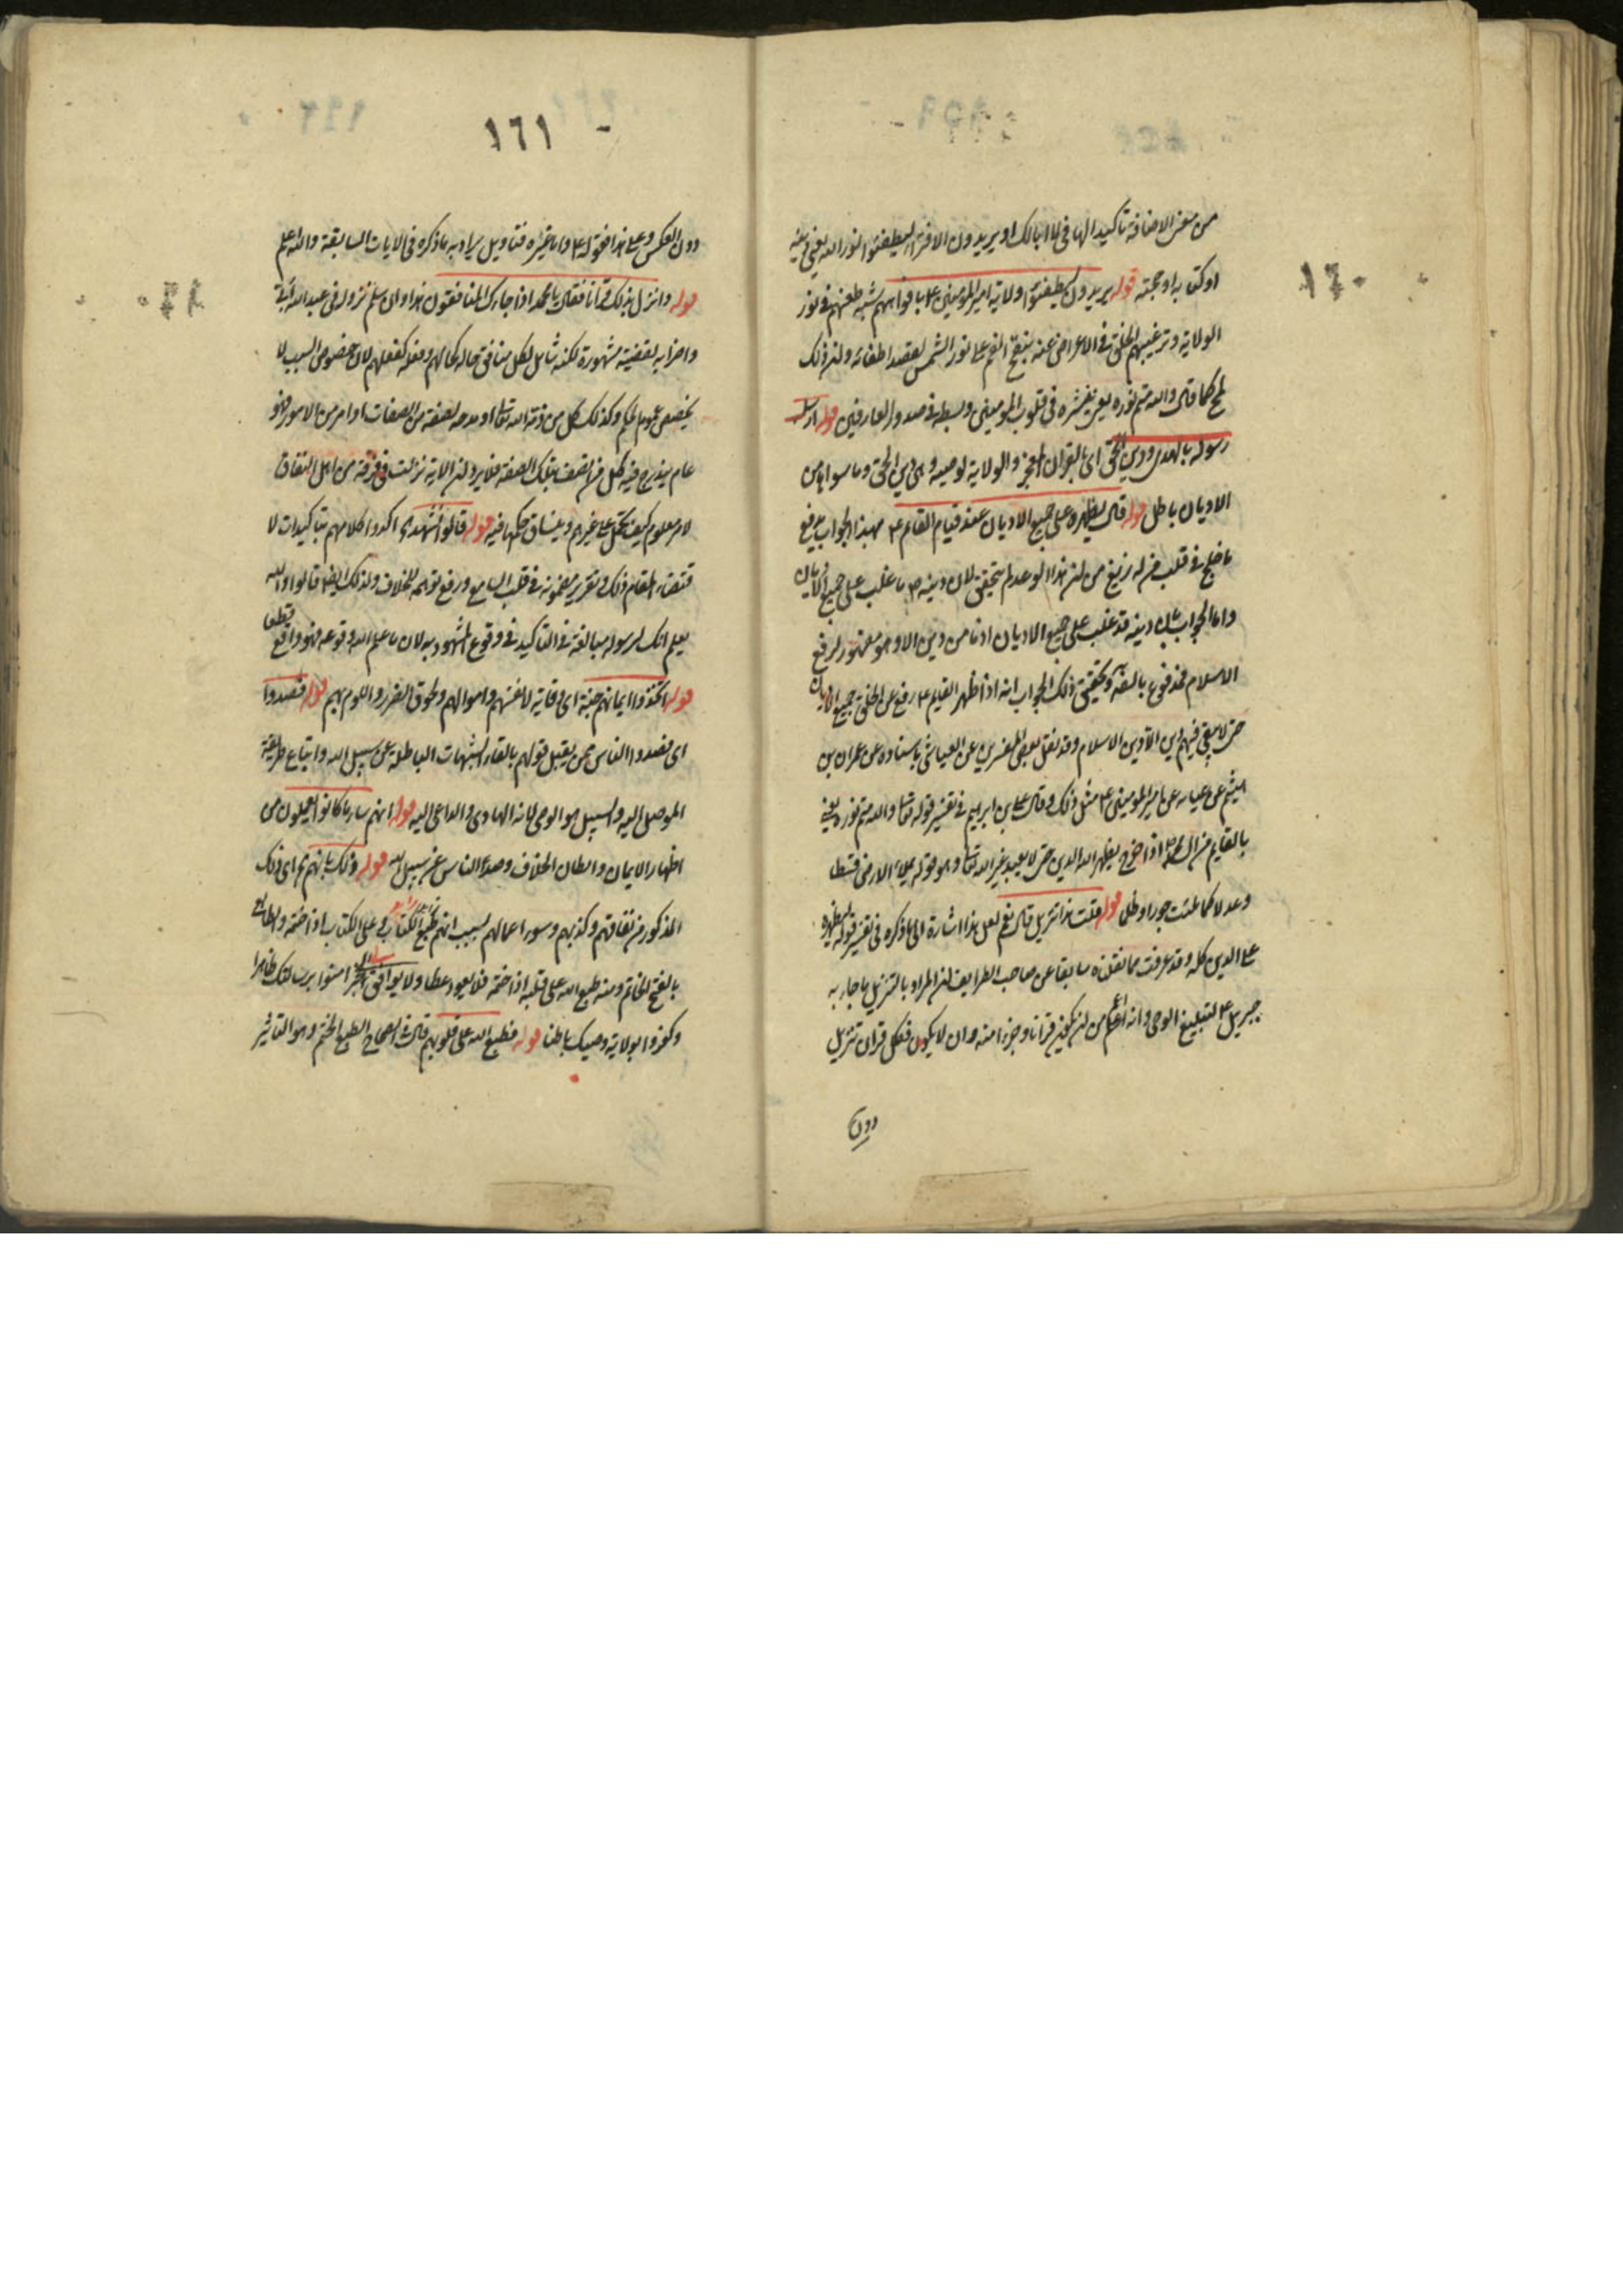 ١٦٠
من معنى الاضافة تاكيدا لها في لا ابا لك او يريدون الافتراء ليطفئوا نور الله يعني دينه
او كتابه او حجته قوله يريدون ليطفئوا ولاية امير المؤمنين ع بافواههم شبه طعنهم في نور
الولاية وترغيبهم الخلق في الاعراض عنه بنفخ الفم على نور الشمس لقصد اطفائه ولذلك
كما قال والله متم نوره يعني ينشره في قلوب المؤمنين وبسطه في صدور العارفين قوله ارسل
رسوله بالهدى ودين الحق اي بالقران المعجز والولاية لوصيه وهي دين الحق وما سواها من
الاديان باطل قوله قال يظهره على جميع الاديان عند قيام القائم ع بهذا الجواب يدفع
ما خلج في قلب من له زيغ من ان هذا الوعد لم يتحقق لان دينه ص ما غلب على جميع الاديان
واما الجواب بان دينه قد غلب على جميع الاديان اذ ما من دين الا وهو مقهور لرفع
الاسلام فمدفوع بالسفه وتحقيق ذلك الجواب انه اذا ظهر القايم ع رفع عن الخلق جميع الاديان
حتى لا يبقى فيهم دين الا دين الاسلام وقد نقل بعض المفسرين عن العياشي باسناده عن عمران بن
ميثم عن عباية عن امير المؤمنين ع مثل ذلك وقال علي بن ابراهيم في تفسير قوله تعالى والله متم نوره يعني
بالقايم من ال محمد اذا خرج يظهر الله الدين حتى لا يعبد غير الله تعالى وهو قوله يملأ الارض قسطا
وعدلا كما ملئت جورا وظلما قوله قلت هذا تنزيل قال نعم لعل هذا اشارة الى ما ذكره في تفسير قوله ليظهره
على الدين كله وقد عرفت مما نقلناه سابقا عن صاحب الطرايف ان المراد بالتنزيل ما جاء به
جبريل ع لتبليغ الوحي وانه اعم من ان يكون قرانا وجزءا منه وان لا يكون فكل قران تنزيل
دون
١٦١
دون العكس وعلى هذا فقوله ع واما غيره فتاويل يراد به ما ذكره في الايات السابقة والله اعلم
قوله وانزل بذلك قرآنا فقال يا محمد اذا جاءك المنافقون هذا وان سلم نزوله في عبد الله بن ابي
واضرابه لقضية مشهورة لكنه شامل لكل منافق حاله كحالهم وفعله كفعلهم لان خصوص السبب لا
يخصص عموم الحكم وكذلك كل من ذمه الله تعالى او مدحه لصفة من الصفات او امر من الامور فهو
عام يندرج فيه كل من اتصف بتلك الصفة فلا يرد ان الاية نزلت في فرقة من اهل النفاق
لامر معلوم كيف تحمل على غيرهم وينساق حكمها فيه قوله قالوا نشهد اكدوا كلامهم بتاكيدات لا
قتضاء المقام ذلك وتقرير مضمونه في قلب السامع ورفع توهم الخلاف ولذلك ايضا قالوا والله
يعلم انك لرسوله مبالغة في التاكيد في وقوع المشهود به لان ما علم الله وقوعه فهو واقع قطعا
قوله اتخذوا ايمانهم جنة اي وقاية لانفسهم واموالهم ولحوق الضرر واللوم بهم قوله فصدوا
اي فصدوا الناس ممن يقبل قولهم بالقاء الشبهات الباطلة عن سبيل الله واتباع طريقة
الموصل اليه والسبيل هو الوصي لانه الهادي والداعي اليه قوله انهم ساء ما كانوا يعملون من
اظهار الايمان وابطان الخلاف وصد الناس عن سبيل الله قوله ذلك بانهم اي ذلك
المذكور من نفاقهم وكذبهم وسوء اعمالهم بسبب انهم طبع الكتاب وعلى الكتاب اذا ختمه والطابع
بالفتح الخاتم ومنه طبع الله على قلبه اذا ختمه فلا يعي وعظا ولا يوافق امنوا برسالتك ظاهرا
وكفروا بولاية وصيك باطنا قوله فطبع الله على قلوبهم قال في الصحاح الطبع الختم وهو التاثير